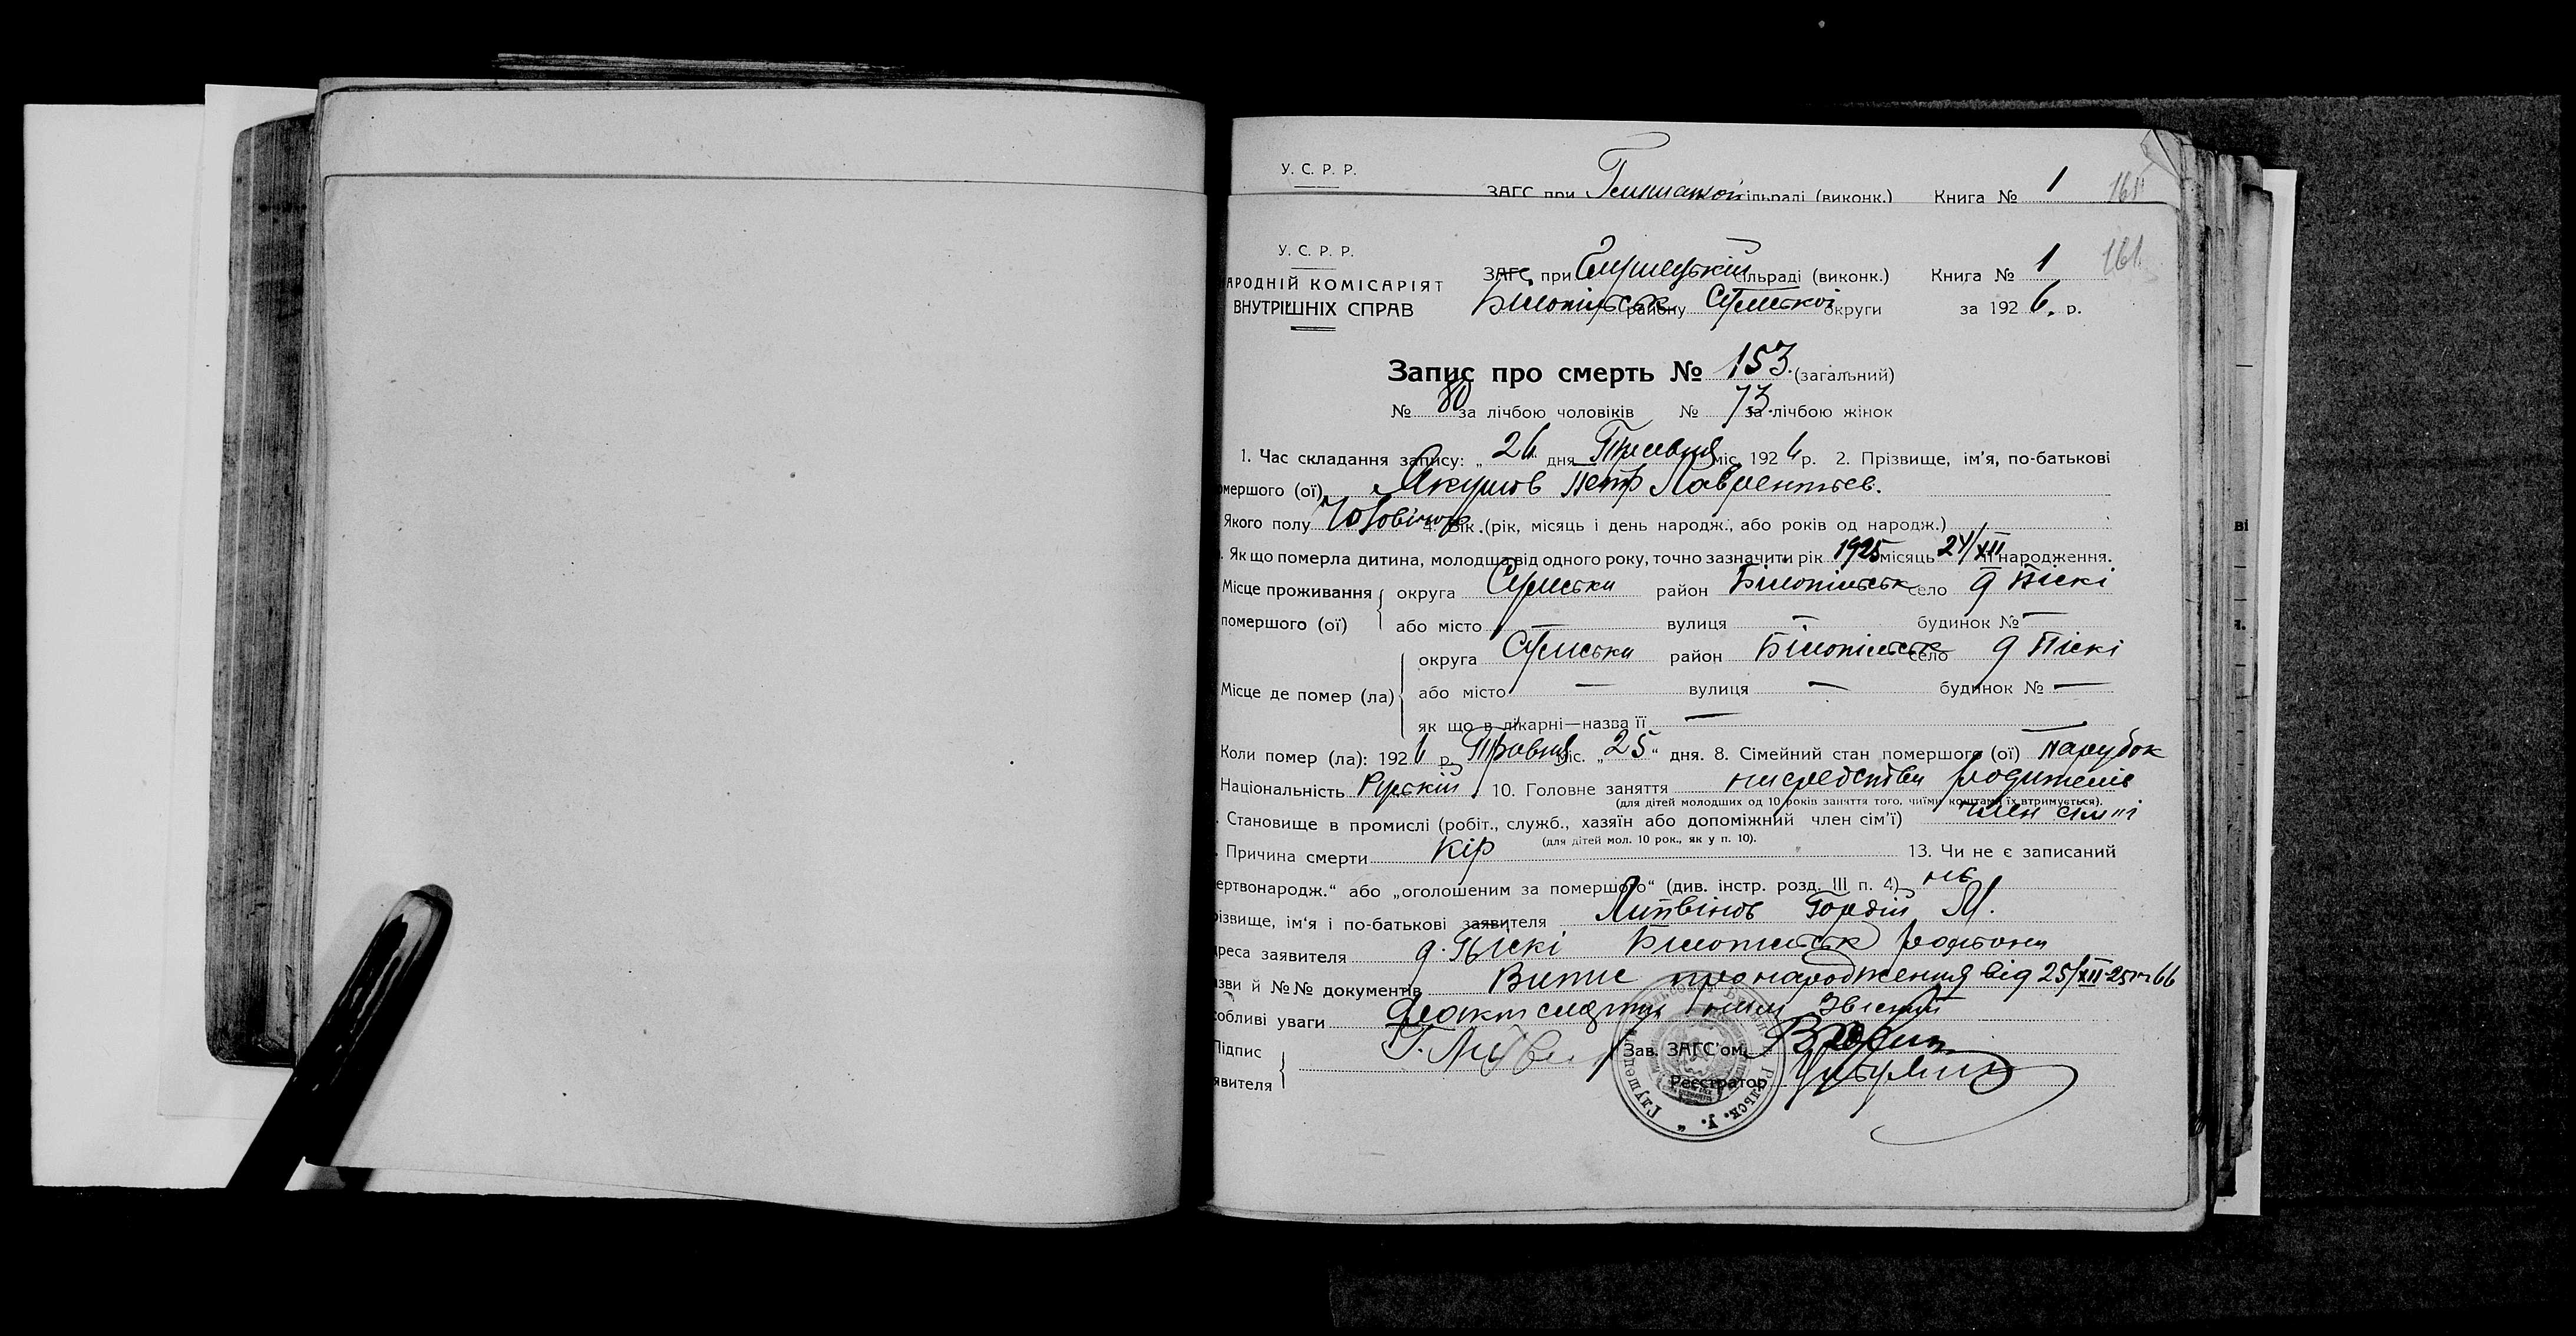 У. С. Р. Р.
ЗАГС при сільраді (виконк.) Книга № 1
У. С. Р. Р. 161
НАРОДНІЙ КОМІСАРІЯТ ЗАГС при сільраді (виконк.) Книга № 1
ВНУТРІШНІХ СПРАВ Білопільськ району Сумської округи за 1926. р.
Запис про смерть № 153. (загальний)
№ 80 за лічбою чоловіків № 73. за лічбою жінок
1. Час складання запису: „26" дня Травня міс. 1926 р. 2. Прізвище, ім'я, по-батькові
омершого (ої) Якушов Петр Лаврентьев.
Якого полу Чоловічор 4. Вік (рік, місяць і день народж., або років од народж.)
. Як що померла дитина, молодша від одного року, точно зазначити рік 1925 місяць 24/XII народження.
Місце проживання округа Сумська район Білопільськ село д Піскі
помершого (ої) або місто — вулиця — будинок № —
округа Сумська район Білопільськ село д Піскі
Місце де помер (ла) або місто — вулиця — будинок № —
як що в лікарні—назва її —
Коли помер (ла): 1926 р. Травня міс. „25" дня. 8. Сімейний стан помершого (ої) парубок
Національність Руській 10. Головне заняття на средства родителів
(для дітей молодших од 10 років заняття того, чиїми коштами їх втримується).
. Становище в промислі (робіт., служб., хазяїн або допоміжний член сім'ї) член сімʼї
(для дітей мол. 10 рок., як у п. 10).
. Причина смерти Кір 13. Чи не є записаний
ертвонародж." або „оголошеним за помершого" (див. інстр. розд. III п. 4) не
різвище, ім'я і по-батькові заявителя Литвінов Гордій М.
дреса заявителя д. Піскі Білопільськ района
зви й №№ документів Випис про народження від 25/XII-25 № 66
обливі уваги Факт смерти нам Звісний
Підпис Г. Литви Зав. ЗАГС'ом
явителя Реєстратор